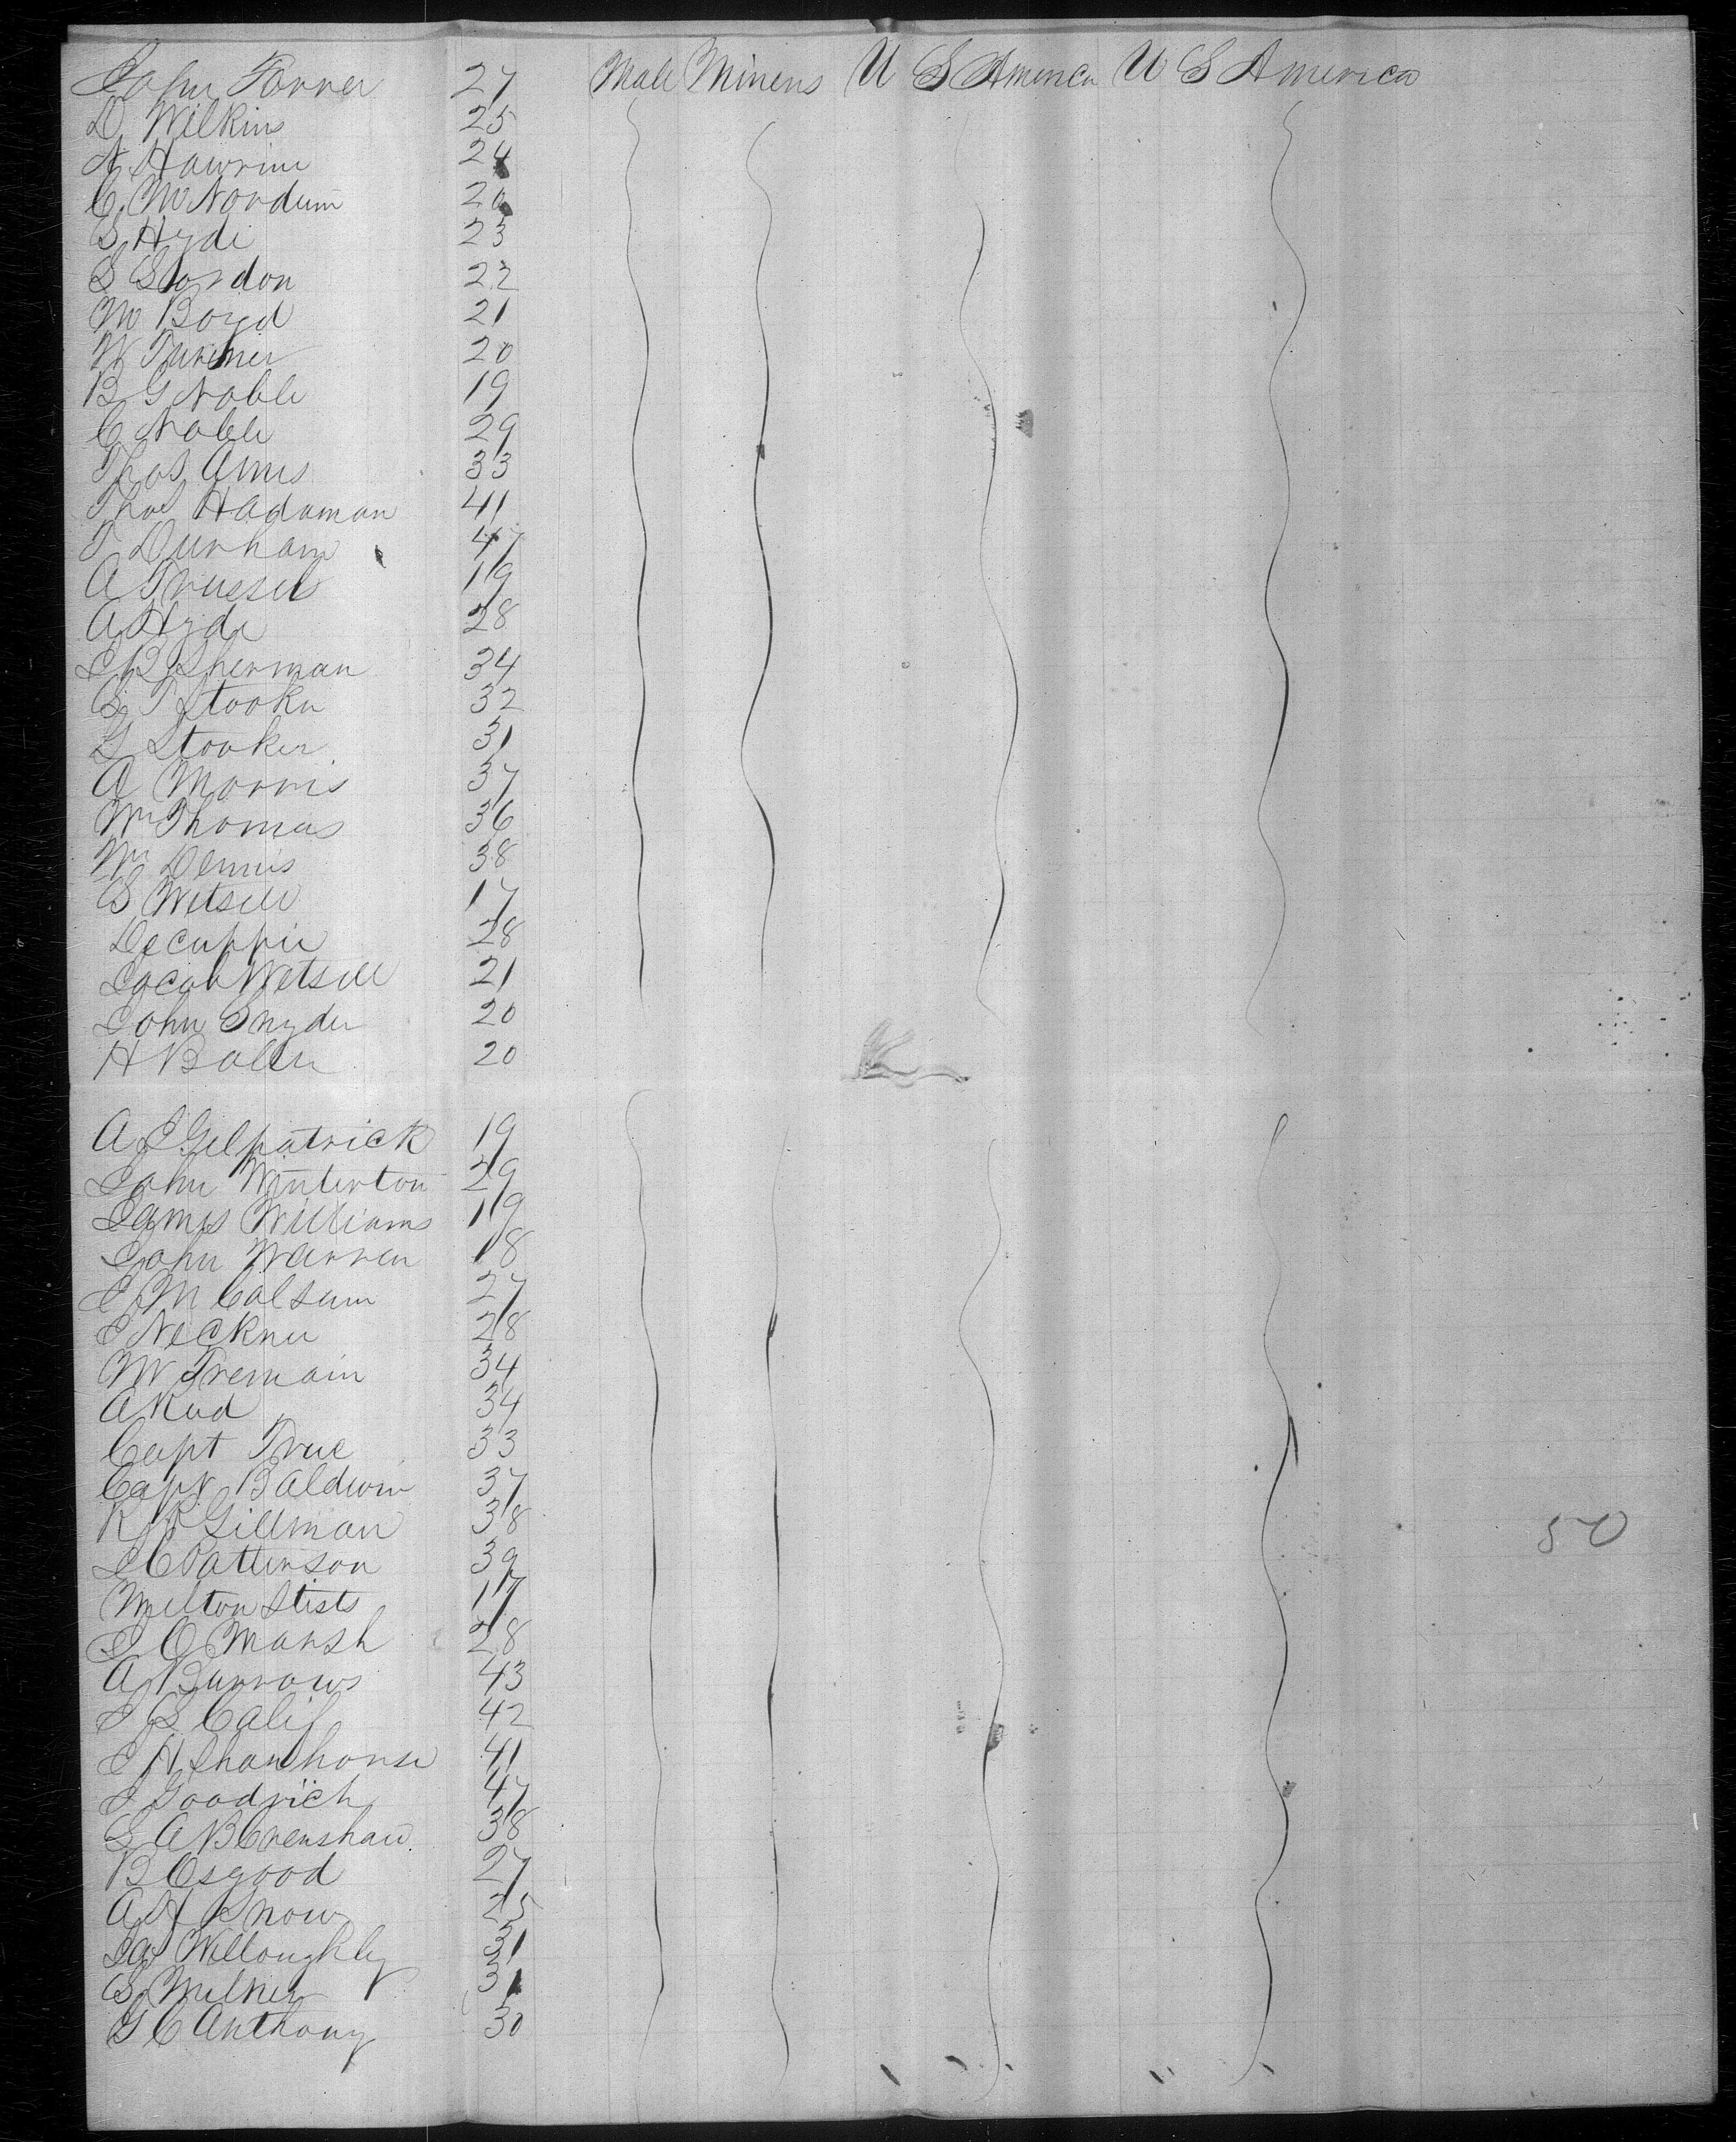 John Forner 27 Male Miners U S America U S America
D Wilkins 25
N Hawrim 24
C. M Nordum 20
S Hyde 23
S Slordon 22
M Boyd 21
W Turner 20
B G Noble 19
C Noble 29
Thos Ames 33
Thos Hadaman 41
T Durham 47
A Trussel 19
A Hyde 28
J B Sherman 34
C T Stooker 32
G Stooker 31
A Morris 37
Wm Thomas 36
Wm Dennis 38
S Wetsell 17
Decuppie 28
Jacob Wetsell 21
John Snyder 20
H Baller 20
A J Gelpatrick 19
John Winterton 29
James Williams 19
John Warren 18
J M Colsum 27
J Neckner 28
W Tremain 34
A Rud 34
Capt True 33
Capt Baldwin 37
R R Gillman 38
J C Patterson 39
Melton Stists 17
J O Marsh 28
A Burrows 43
J S Calif 42
J H Shawhonse 41
J Goodrich 47
L A B Crenshaw 38
B Osgood 27
A H Snow 25
Jas Willoughby 31
S Milner 31
G C Anthony 30
50